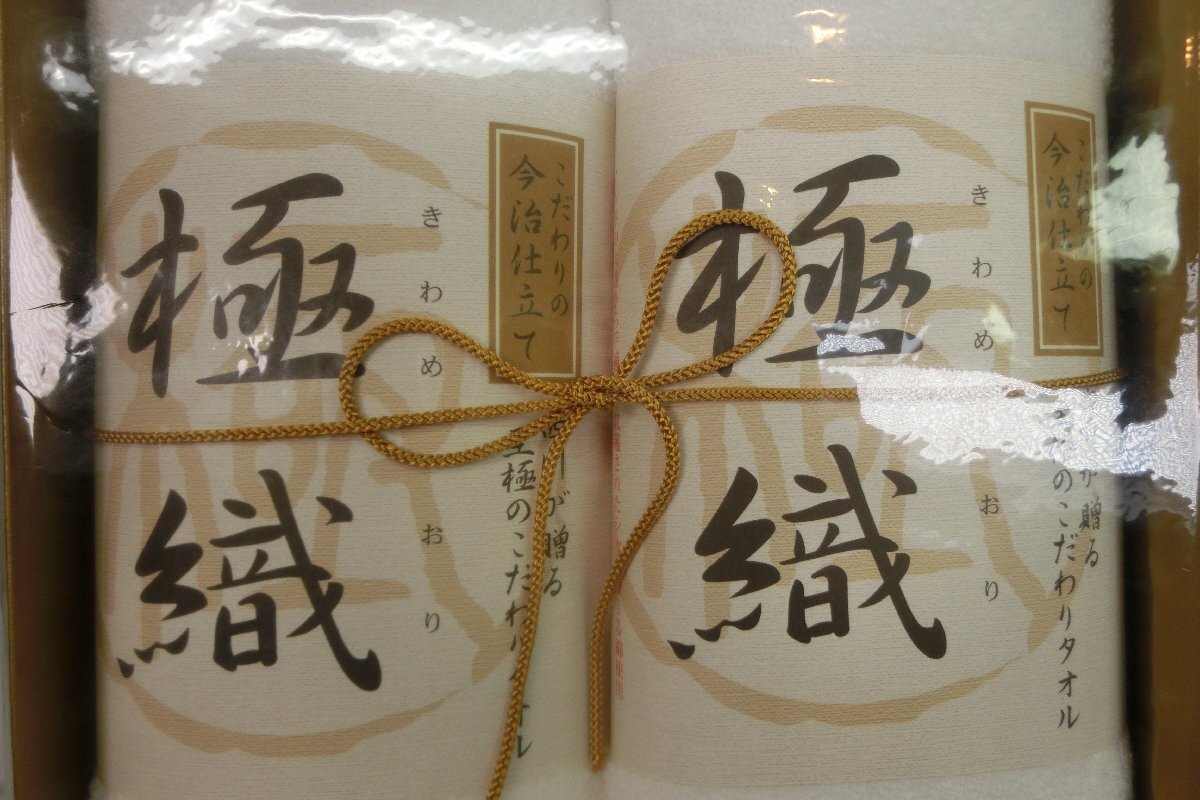 こだわりの
今治仕立て
きわめ
おり
極織
が贈る
至極のこだわり
オル
こだわりの
今治仕立て
きわめ
おり
極織
が贈る
のこだわりタオル